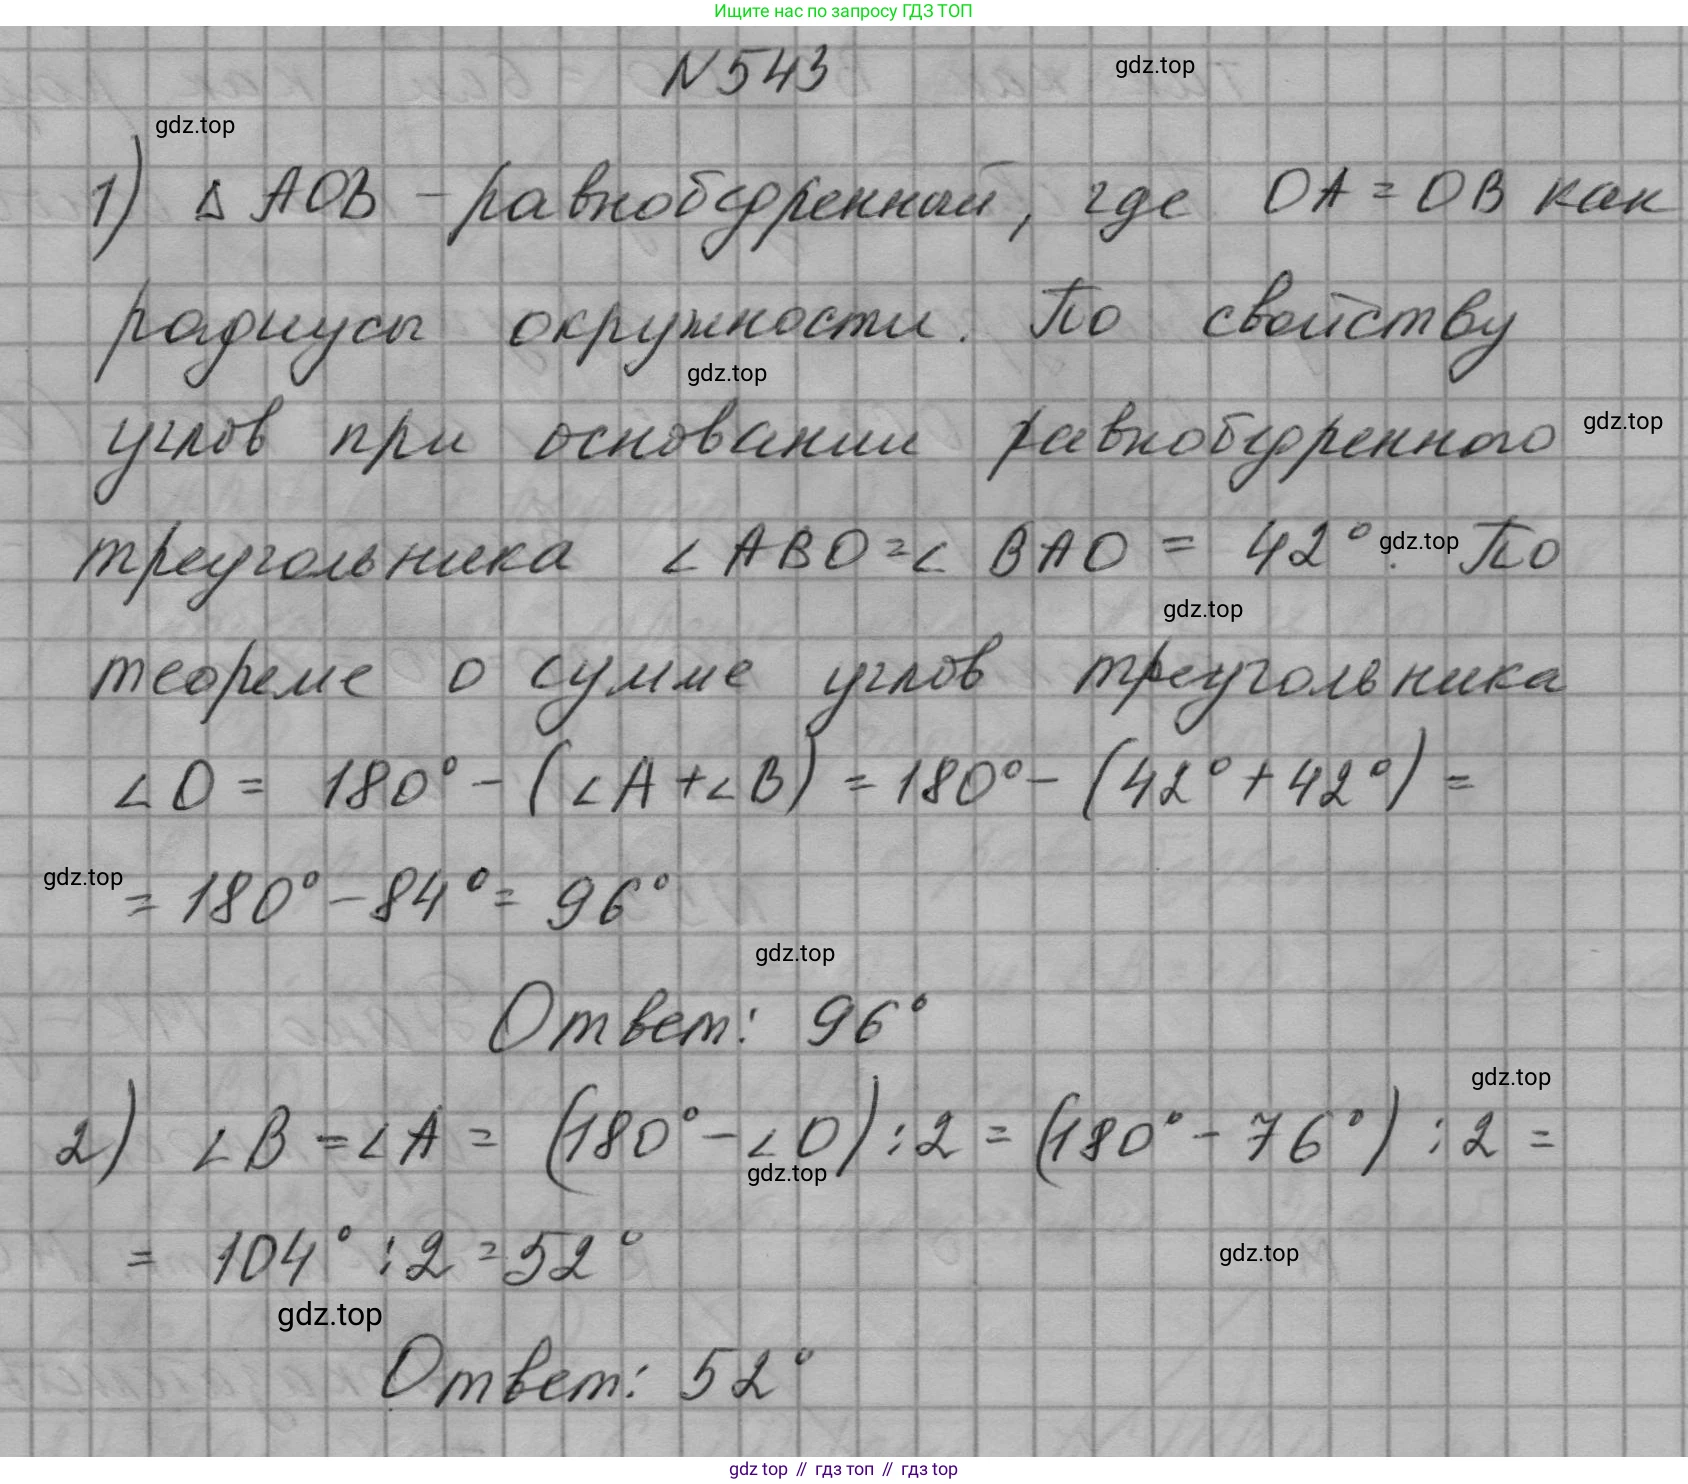 Ищите нас по запросу ГДЗ ТОП
N543
gdz.top
gdz.top
1) Δ AOB - равнобедренный, где OA = OB как
радиусы окружности. По свойству
gdz.top
углов при основании равнобедренного
gdz.top
треугольника ∠ ABO = ∠ BAO = 42°. По
gdz.top
gdz.top
теореме о сумме углов треугольника
∠O = 180° - (∠A + ∠B) = 180° - (42° + 42°) =
gdz.top
= 180° - 84° = 96°
gdz.top
Ответ: 96°
gdz.top
2) ∠B = ∠A = (180° - ∠O) : 2 = (180° - 76°) : 2 =
gdz.top
= 104° : 2 = 52°
gdz.top
gdz.top
Ответ: 52°
gdz top // гдз топ // гдз top